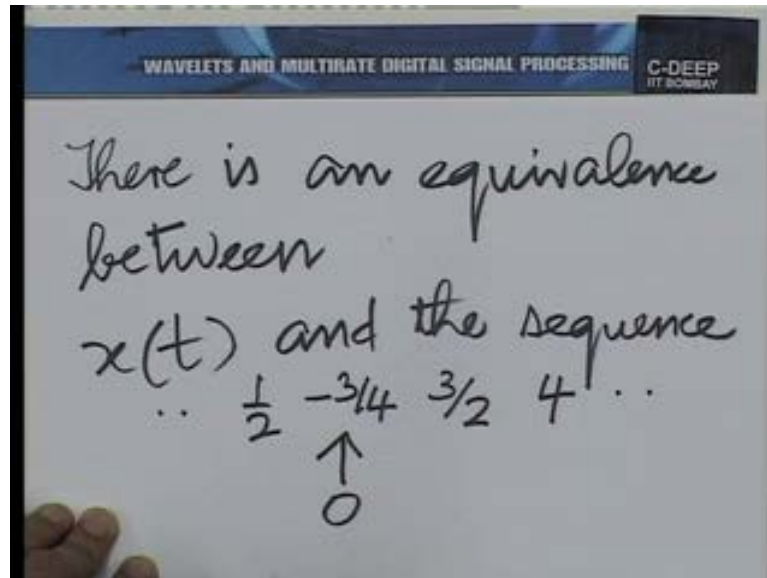 WAVELETS AND MULTIRATE DIGITAL SIGNAL PROCESSING
C-DEEP
IIT BOMBAY
There is an equivalence
between
x(t) and the sequence
.. 1/2 -3/4 3/2 4 ..
↑
0